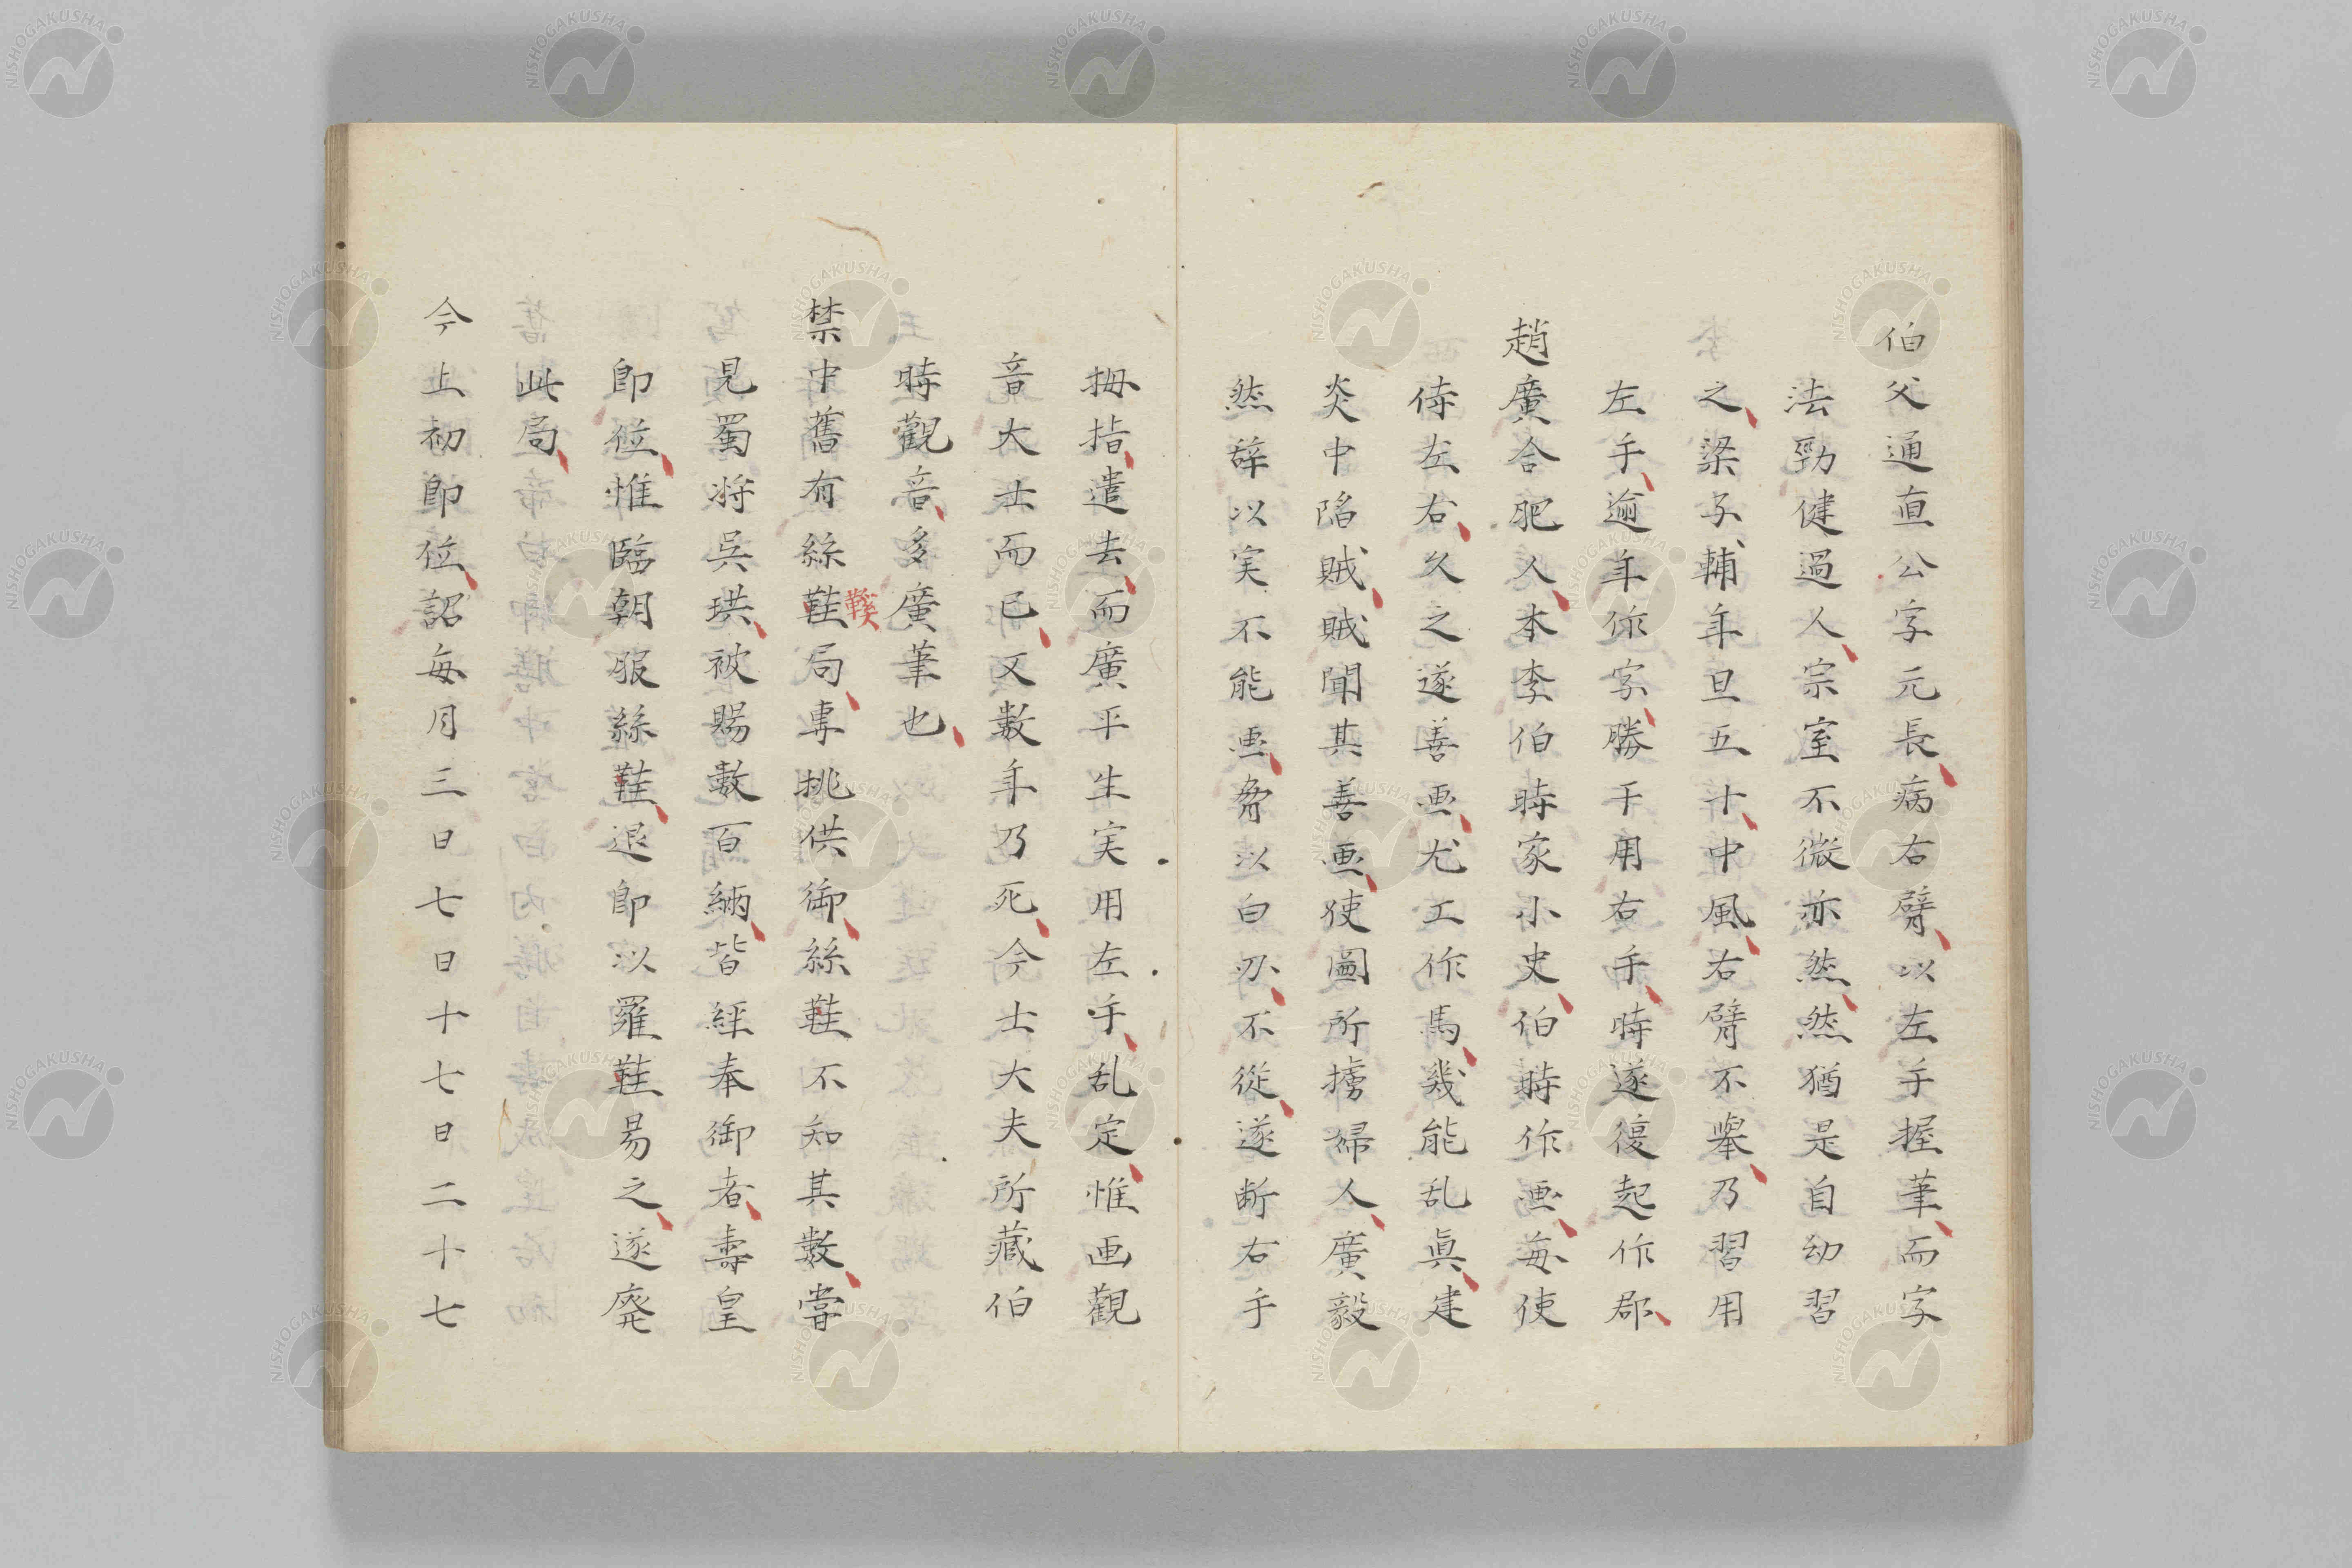 伯父通直公字元長病右臂以左手握筆而字
法勁健過人宗室不微亦然然猶是自幼習
之梁子輔年旦五十中風右臂不舉乃習用
左手逾年作字勝于用右手時遂復起作郡
趙廣合肥人本李伯時家小史伯時作画每使
侍左右久之遂善画尤工作馬幾能乱眞建
炎中陷賊賊聞其善画使圖所擄婦人廣毅
然辞以実不能画脅以白刃不從遂断右手
拇指遣去而廣平生実用左手乱定惟画觀
音大士而已又數年乃死今士大夫所藏伯
時觀音多廣筆也
禁中舊有絲鞋局專挑供御絲鞋不知其數嘗
鞵
見蜀將呉珙被賜數百緉皆經奉御者壽皇
即位惟臨朝服絲鞋退即以羅鞋易之遂廢
此局
今上初即位詔每月三日七日十七日二十七
NISHOGAKUSHA